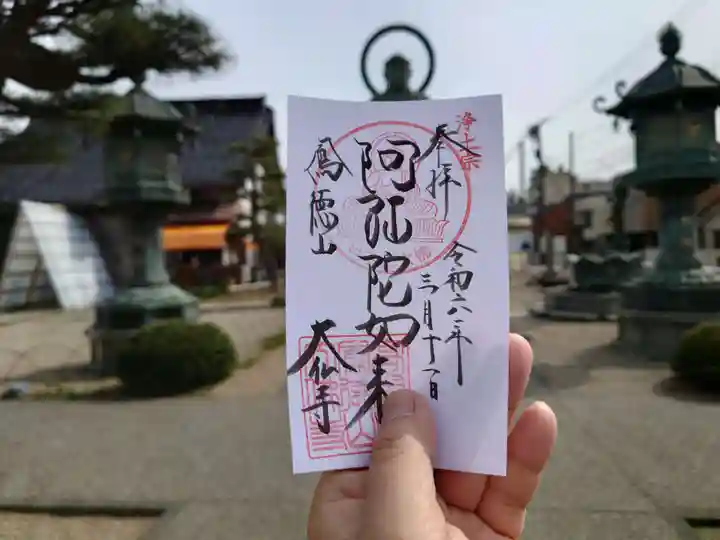 浄土宗
奉拝
令和六年
三月十一日
阿弥陀如来
鳳徳山
大仏寺